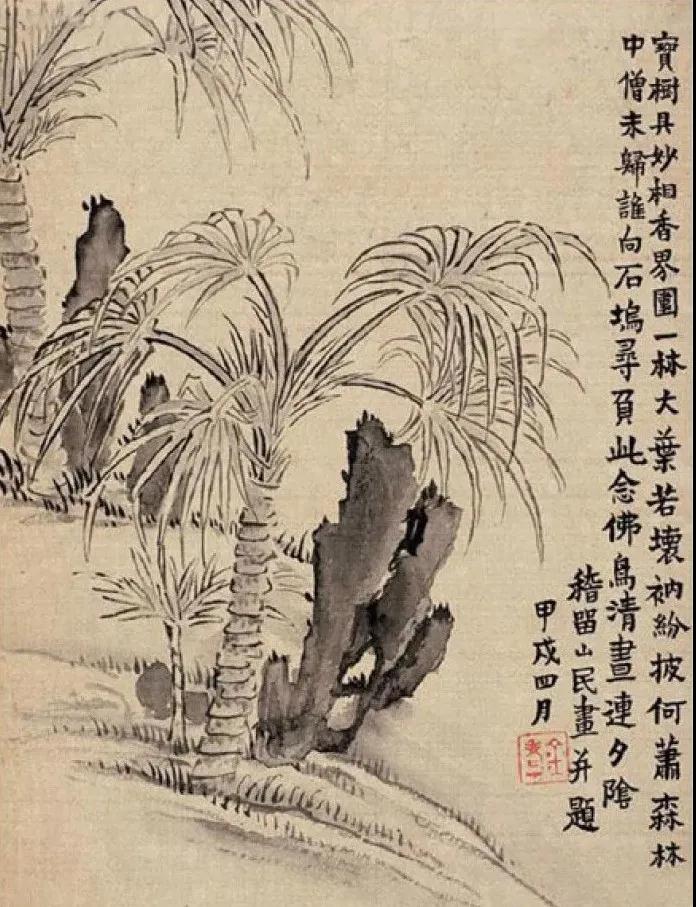 寶樹具妙相香界圍一林大葉若壞衲紛披何蕭森林
中僧未歸誰向石塢尋負此念佛鳥清晝連夕陰
稽留山民畫并題
甲戌四月